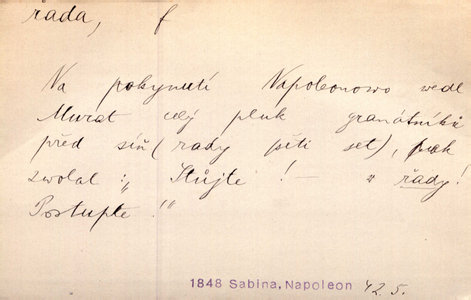 řada, f
Na pokynutí Napoleonovo vedl
Murat celý pluk granátníků
před síň (rady pěti set), pak
zvolal: „Stůjte! — " řady!
Postupte!"
1848 Sabina, Napoleon 42 5.